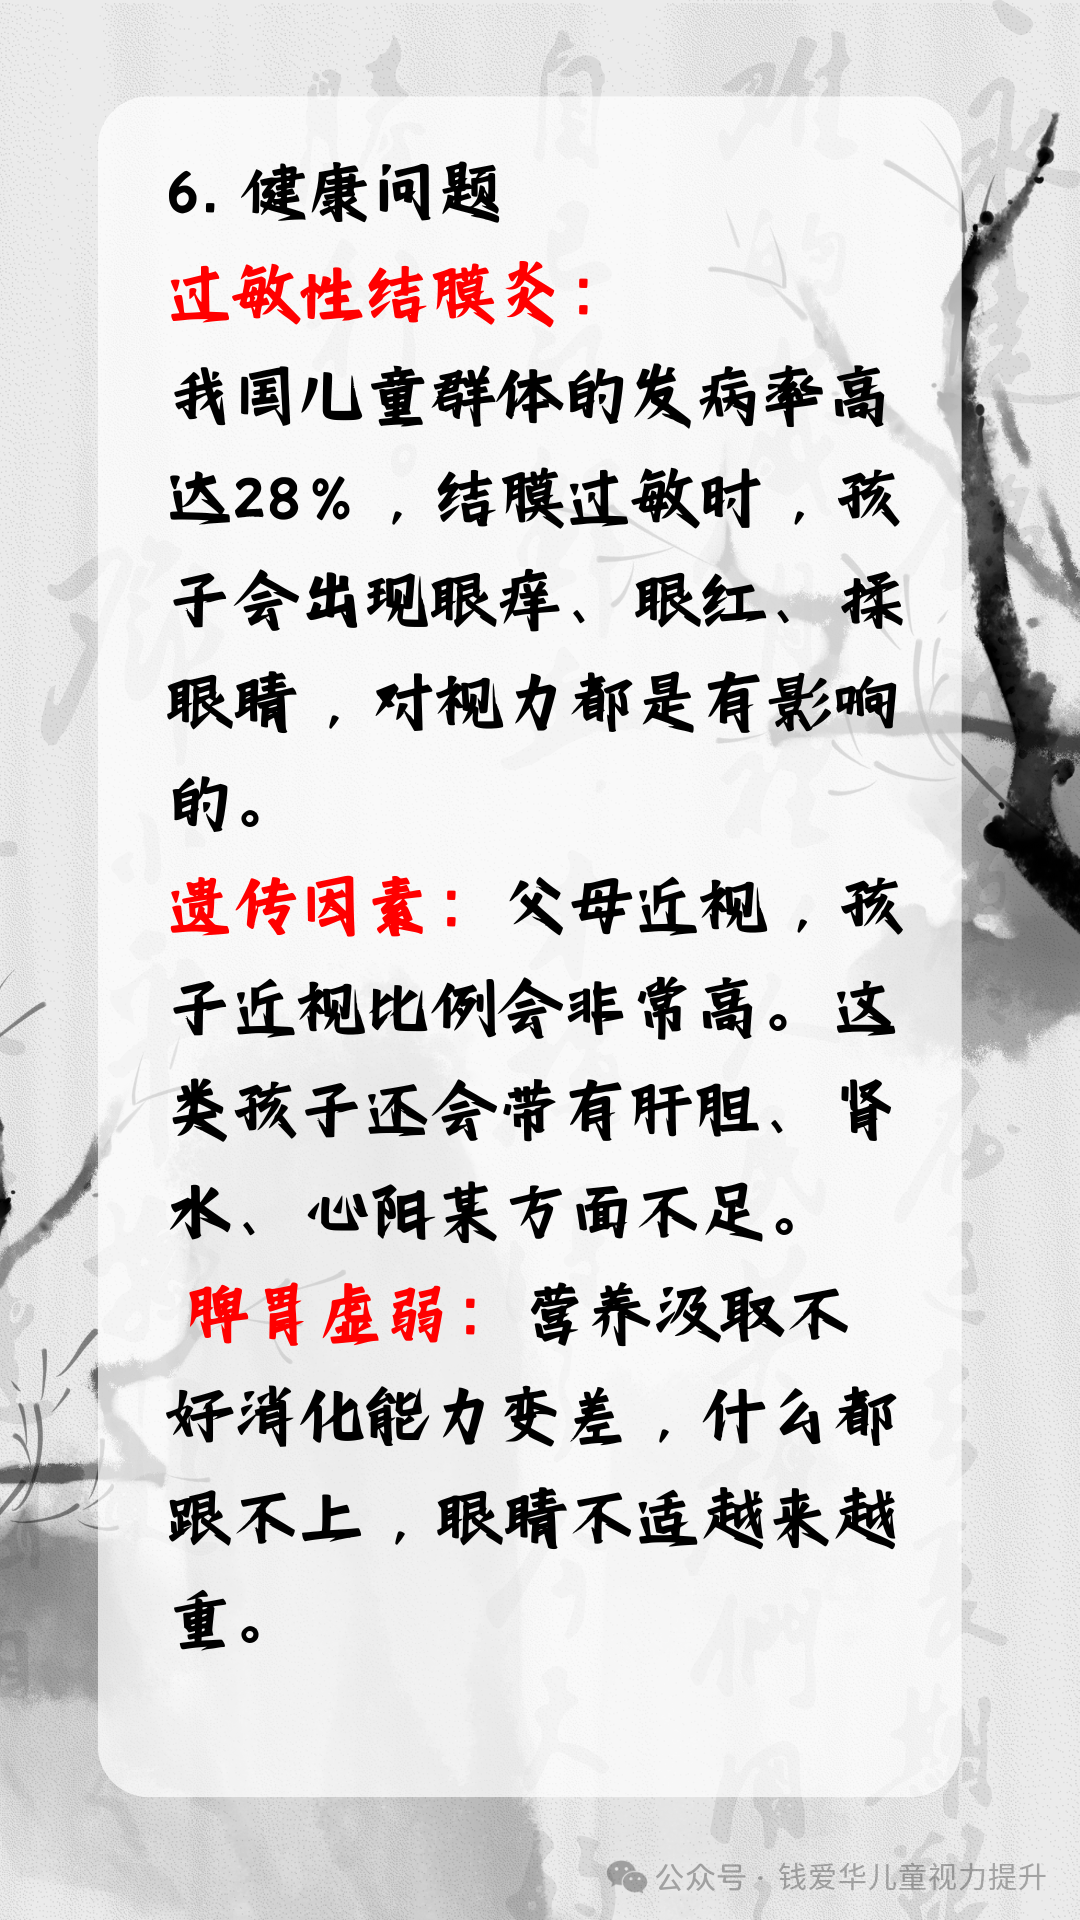 6. 健康问题
过敏性结膜炎：
我国儿童群体的发病率高
达28%，结膜过敏时，孩
子会出现眼痒、眼红、揉
眼睛，对视力都是有影响
的。
遗传因素：父母近视，孩
子近视比例会非常高。这
类孩子还会带有肝胆、肾
水、心阳某方面不足。
脾胃虚弱：营养汲取不
好消化能力变差，什么都
跟不上，眼睛不适越来越
重。
公众号·钱爱华儿童视力提升